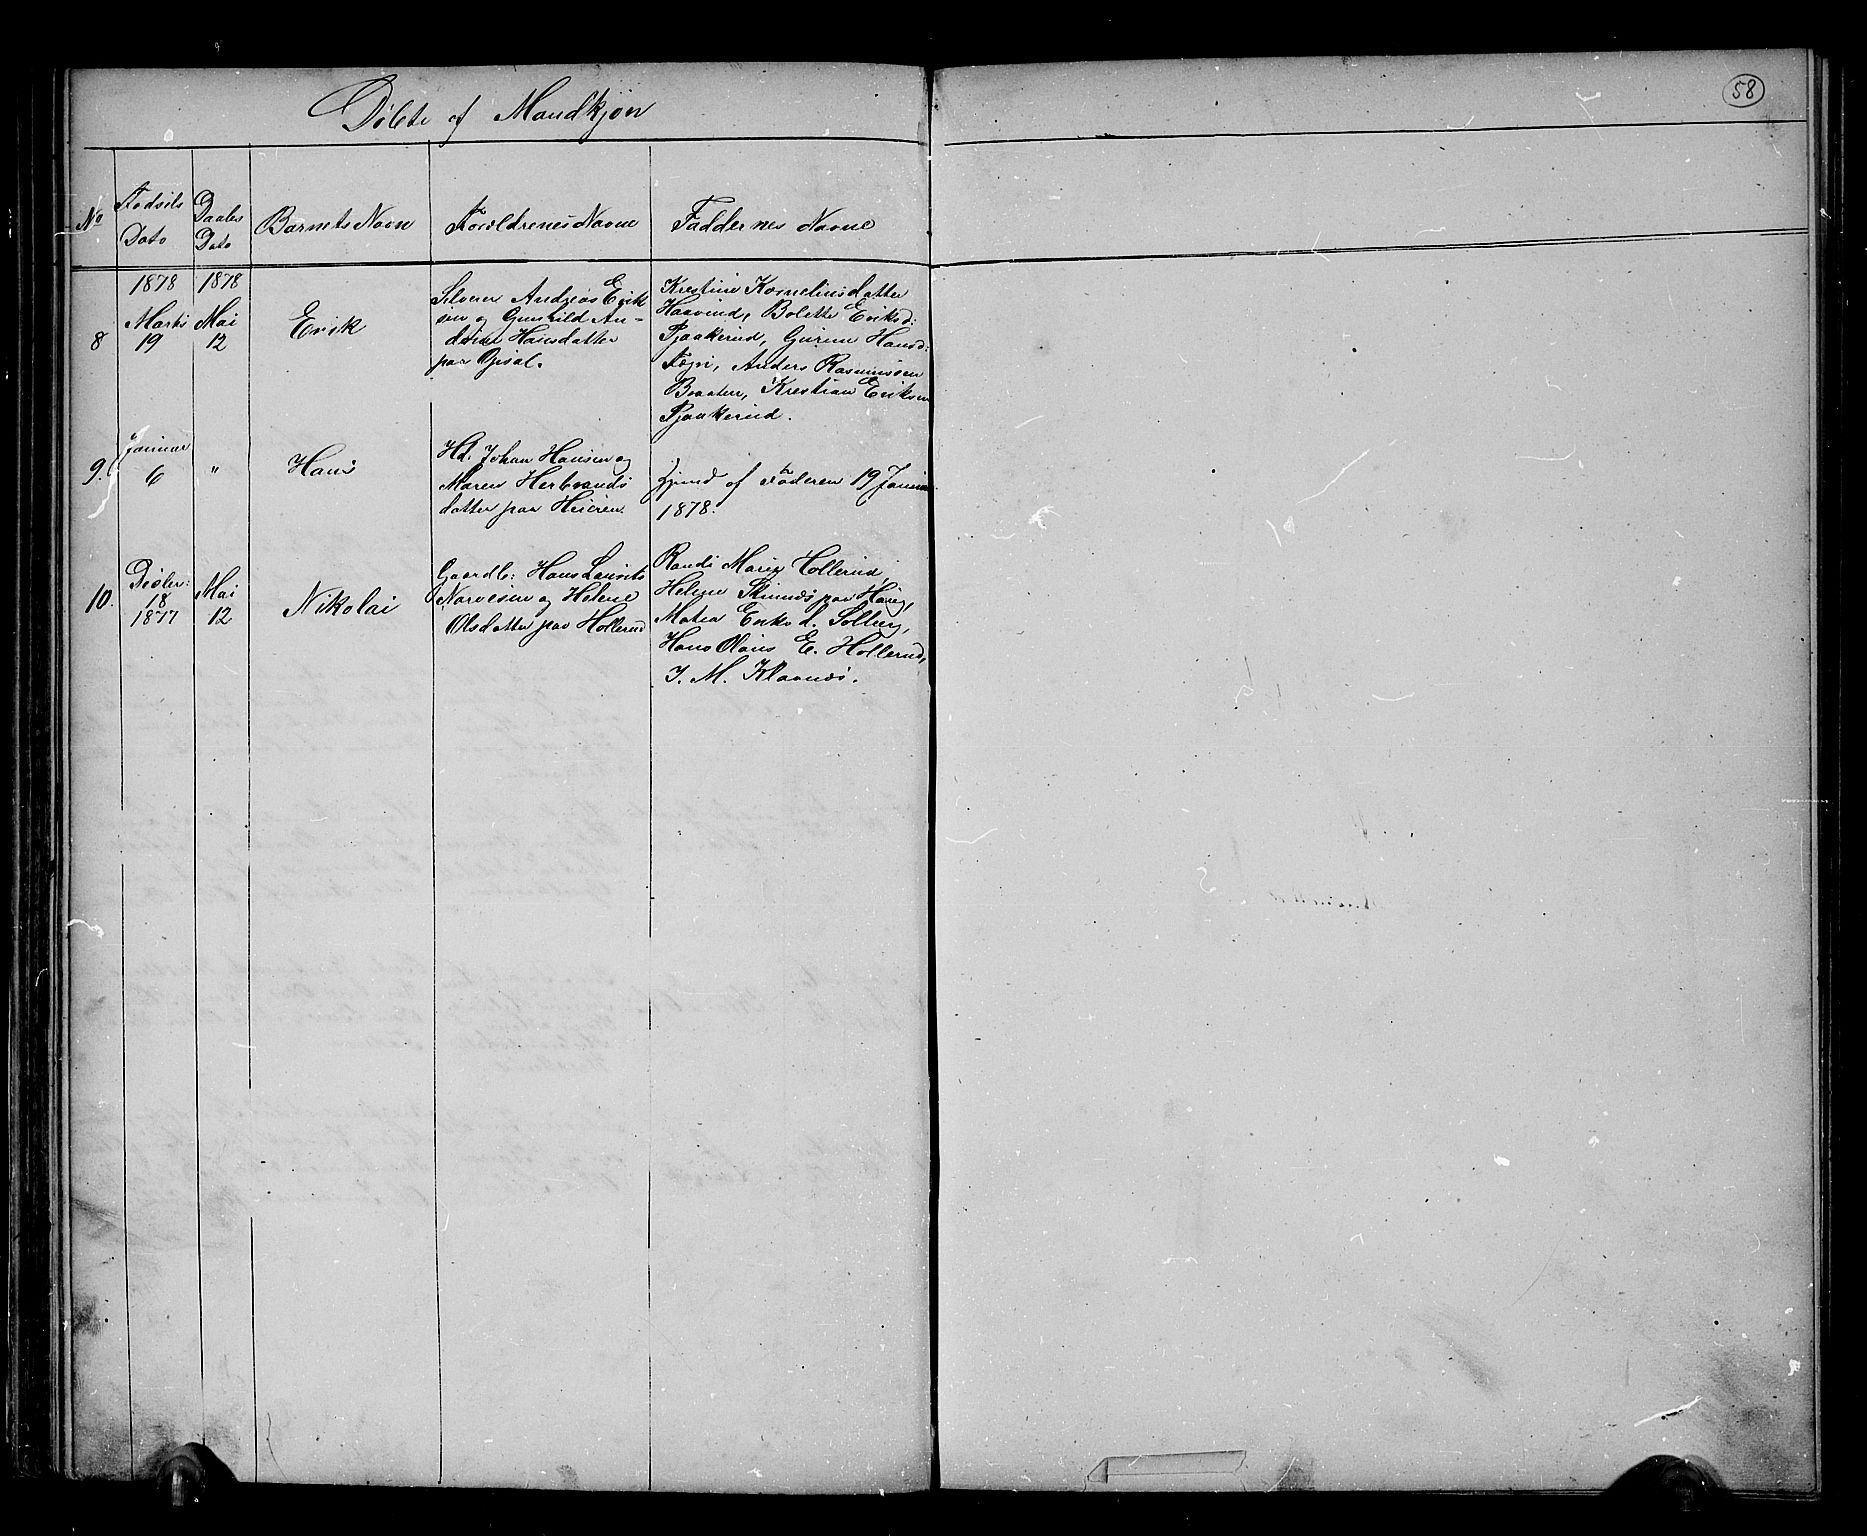 58
Døbte af Mandkjøn
No
Fødsels
Dato
Daabs
Dato
Barnets Navn
Forældrenes Navne
Faddernes Navne
8
1878
Marts
19
1878
Mai
12
Erik
Selveier Andreas Erik
sen og Gunhild An-
drine Hansdatter
paa Opsal.
Krestine Korneliusdatter
Haavind, Bolette Eriksd:
Pjaakerud, Gurine Hansd:
Fegri, Anders Rasmussen
Braaten, Krestian Eriksen
Pjaakerud.
9.
Januar
6
"
Hans
Hd. Johan Hansen og
Maren Herbrands
datter paa Heieren
hjemd af Faderen 19 Januar
1878.
10.
Decbr:
18
1877
Mai
12
Nikolai
Gaardb: Hans Laurits
Narvesen og Helene
Olsdatter paa Hollerud
Randi Marie Hollerud,
Helene paa
Matea Eriksd. Solberg,
Hans Olaus E. Hollerud,
J. M. Klavnæs.